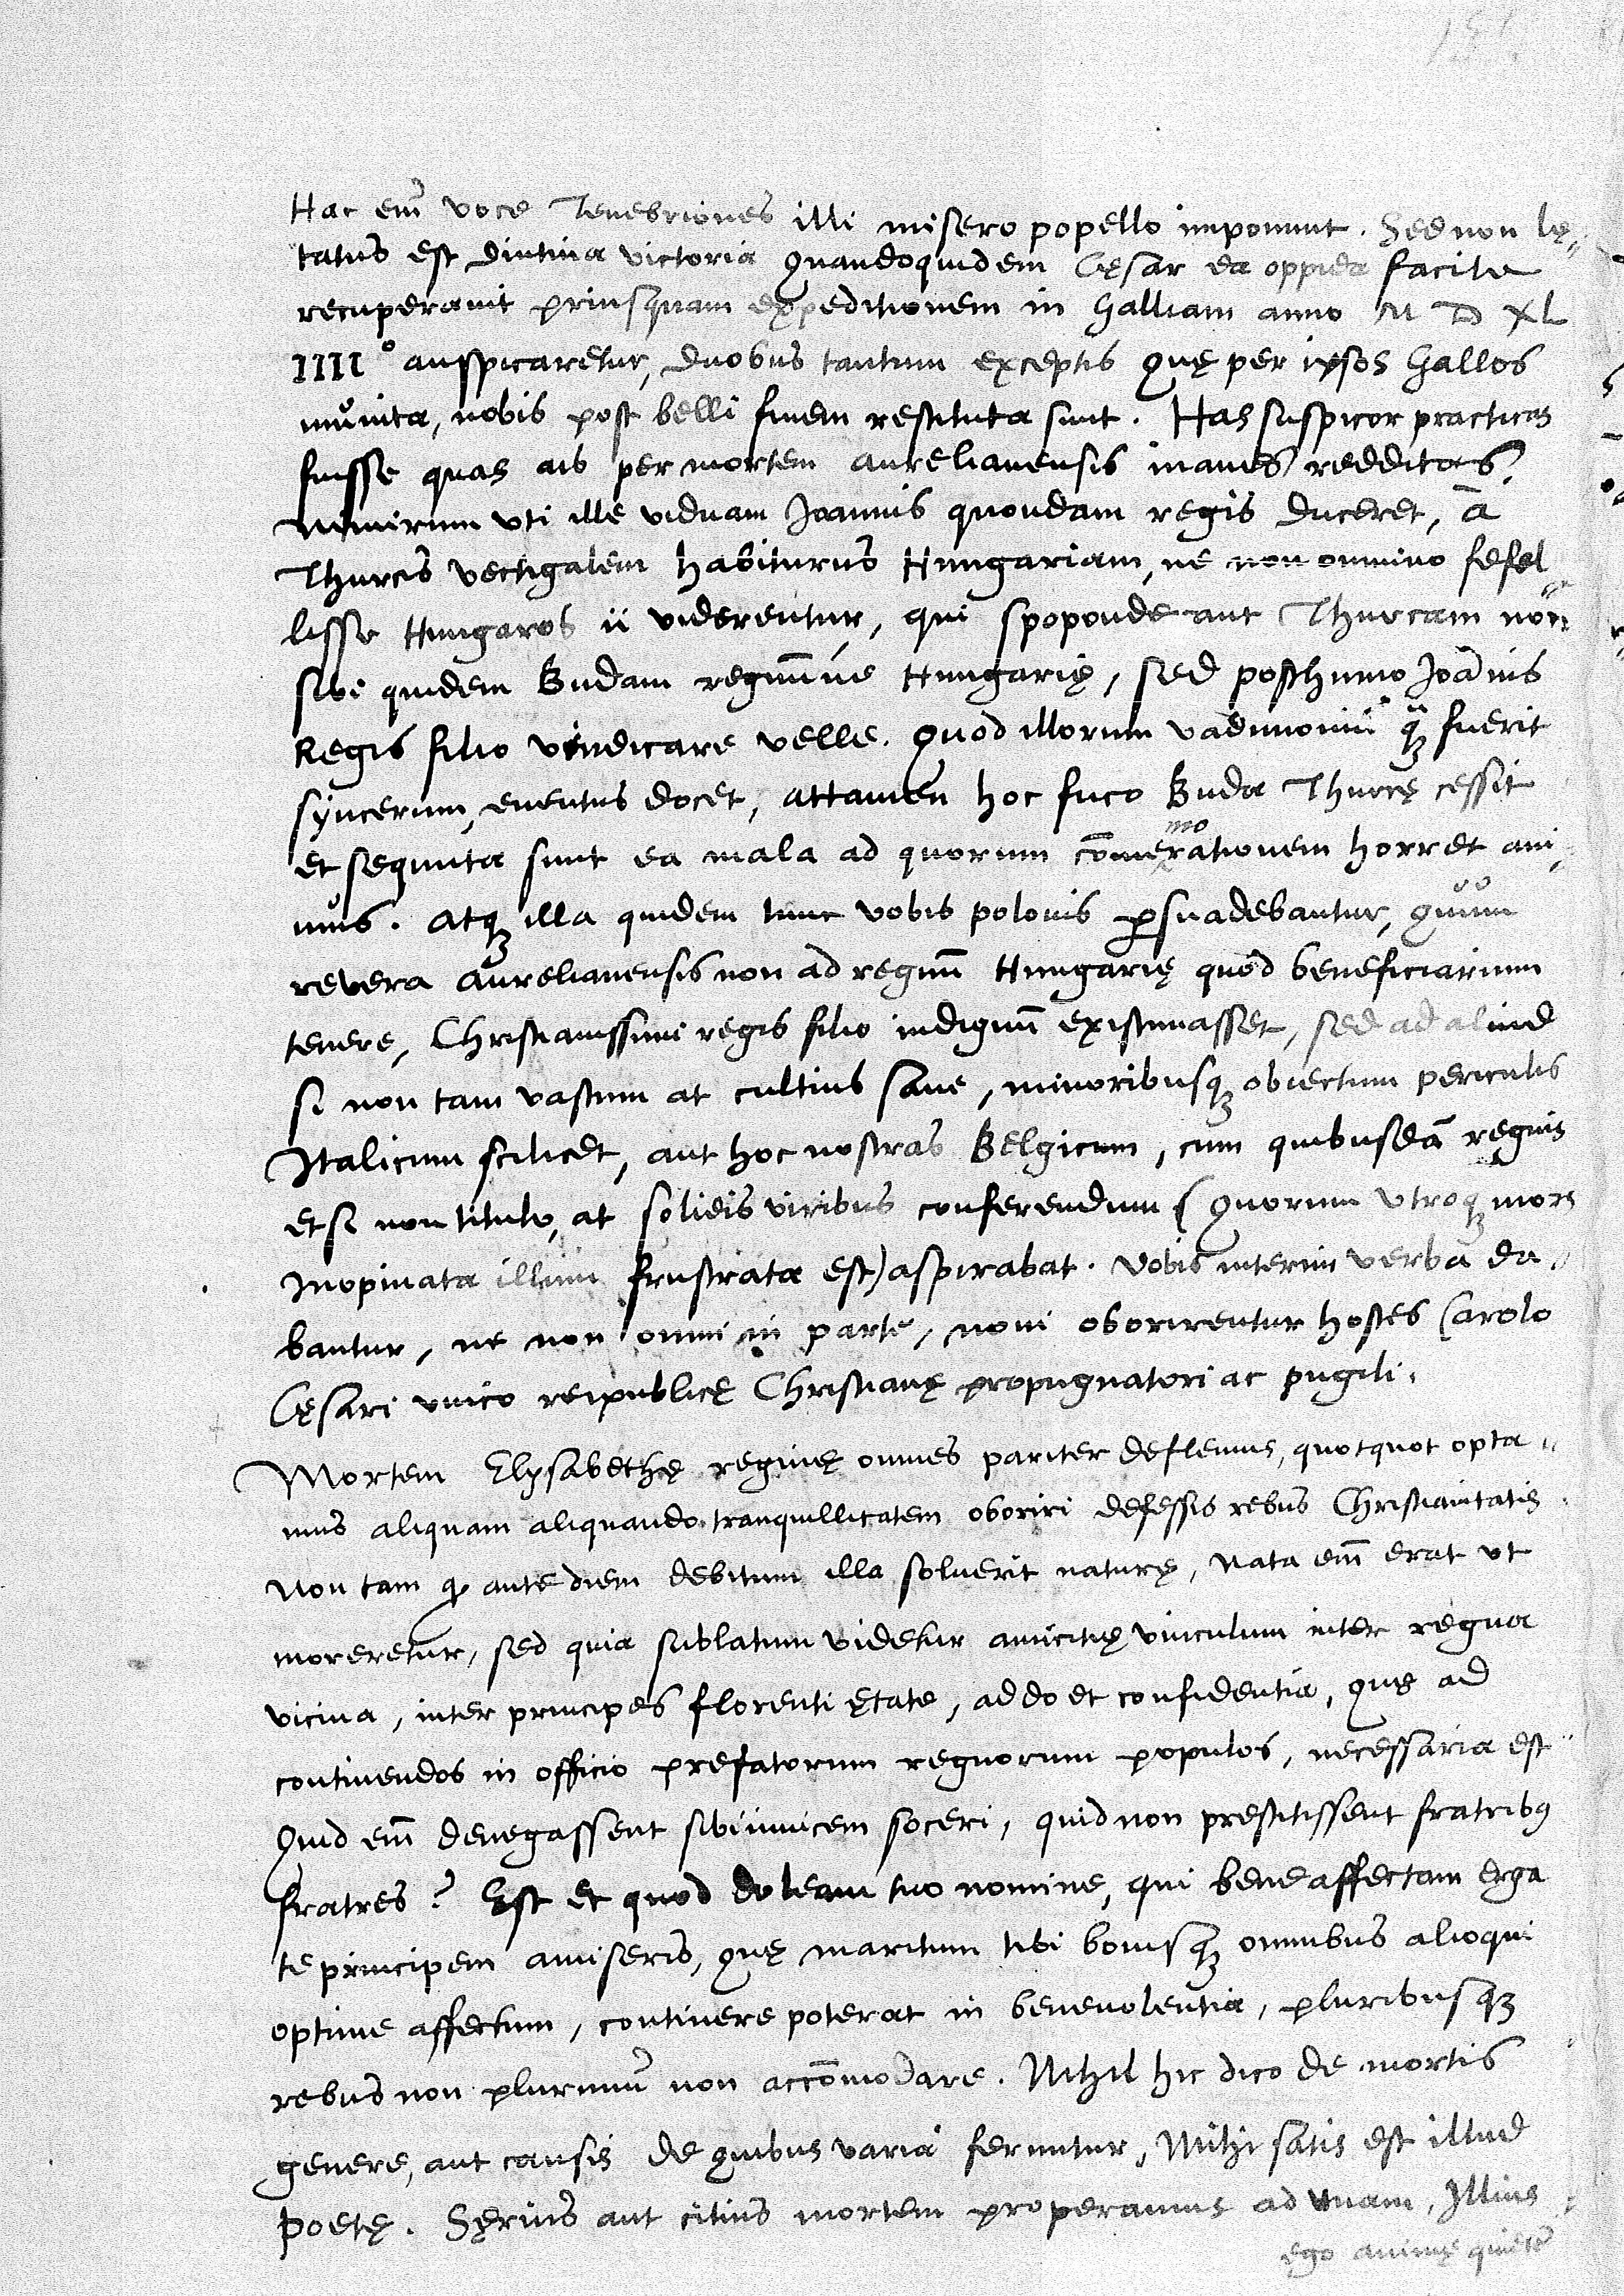 Hac em̃ voce Tenebriones illi misero popello imponunt. Sed non lę-
tatus est diutina victoria Quandoquidem Cęsar ea oppida facile
recuperavit priusquam expeditionem in Galliam anno M D XL
IIII° auspicaretur, duobus tantum exceptis Quę per ipsos Gallos
munita, nobis post belli finem restituta sunt. Has suspicor practicas
fuisse quas ais per mortem aurelianensis inanes redditas,
Nimirum vti ille viduam Joannis quondam regis duceret, à
Thurcis vectigalem habiturus Hungariam, ne non omnino fefel-
lisse Hungaros ii viderentur, qui spoponderant Thurcam non
sibi quidem Budam regnum̄ne Hungarię, sed posthumo Joānis
Regis filio vindicare velle. Quod illorum vadimonii q̃ȝ fuerit
syncerum, euentus docet, attamen hoc fuco Buda Thurcę cessit
et sequuta sunt ea mala ad quorum com̄emorationem horret ani-
mus. Atqȝ illa quidem tunc vobis polonis ꝑsuadebantur, quum
revera Aurelianensis non ad regnum̄ Hungarię quod beneficiarium
tenere, Christianissimi regis filio indignum̄ existimasset, sed ad aliud
si non tam vastum at cultius sane, minoribusqȝ obiectum periculis
Italicum scilicet, aut hoc nostras Belgicum, cum quibusdā regnis
etsi non titulo, at solidis viribus conferendum (Quorum vtroqȝ mors
inopinata illum frustrata est) aspirabat. Vobis interim verba da-
bantur, ne non omni in parte, noui oborirentur hostes Carolo
Cęsari vnico reipublicę Christianę propugnatori ac pugili.
Mortem Elysabethę reginę omnes pariter deflemus, quotquot opta-
mus aliquam aliquando tranquillitatem oboriri defessis rebus Christianitatis
Non tam ꝙ ante diem debitum illa soluerit naturę, Nata em̃ erat vt
moreretur, sed quia sublatum videtur amicitię vinculum inter regna
vicina, inter principes florenti ętate, addo et confidentia, Quę ad
continendos in officio prefatorum regnorum populos, necessaria est
Quid em̃ denegassent sibi inuicem soceri, quid non prestitissent fratribꝰ
fratres? Est et quod doleam tuo nomine, qui bene affectam erga
te principem amiseris, Quę maritum tibi bonisqȝ omnibus alioqui
optime affectum, continere poterat in beneuolentia, pluribusqȝ
rebus non plurimum̄ non accom̄odare. Nihil hic dico de mortis
genere, aut causis de Quibus varia feruntur, Mihi satis est illud
Poetę. Sęrius aut citius mortem properamus ad vnam, Illius
ego animę quietē